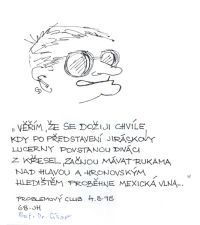 „VĚŘÍM, ŽE SE DOŽIJI CHVÍLE,
KDY PO PŘEDSTAVENÍ JIRÁSKOVY
LUCERNY POVSTANOU DIVÁCI
Z KŘESEL, ZAČNOU MÁVAT RUKAMA
NAD HLAVOU A HRONOVSKÝM
HLEDIŠTĚM PROBĚHNE MEXICKÁ VLNA..."
PROBLÉMOVÝ CLUB 4.8.98